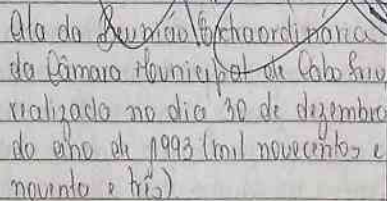 Ata da Reunião Extraordinária
da Câmara Municipal de Cabo Frio
realizada no dia 30 de dezembro
do ano de 1993 (mil novecentos e
noventa e três)